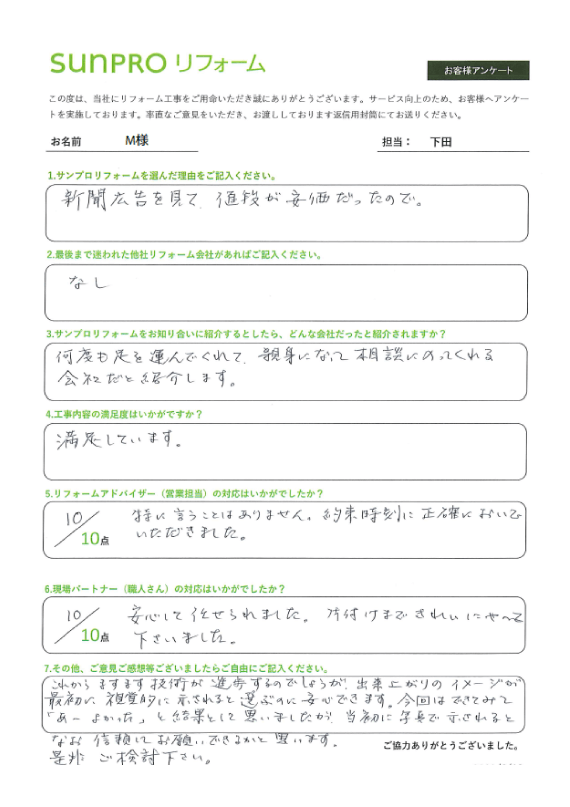 sunPRO リフォーム
お客様アンケート
この度は、当社にリフォーム工事をご用命いただき誠にありがとうございます。サービス向上のため、お客様へアンケー
トを実施しております。率直なご意見をいただき、お渡ししております返信用封筒にてお送りください。
お名前 M様 担当： 下田
1.サンプロリフォームを選んだ理由をご記入ください。
新聞広告を見て、値段が安価だったので。
2.最後まで迷われた他社リフォーム会社があればご記入ください。
なし
3.サンプロリフォームをお知り合いに紹介するとしたら、どんな会社だったと紹介されますか？
何度も足を運んでくれて、親身になって相談にのってくれる
会社だと紹介します。
4.工事内容の満足度はいかがですか？
満足しています。
5.リフォームアドバイザー（営業担当）の対応はいかがでしたか？
10/10点
特に言うことはありません。約束時刻に正確においで
いただきました。
6.現場パートナー（職人さん）の対応はいかがでしたか？
10/10点
安心して任せられました。片付けまできれいにやって
下さいました。
7.その他、ご意見ご感想等ございましたらご自由にご記入ください。
これからますます技術が進歩するのでしょうが、出来上がりのイメージが
最初に視覚的に示されると選ぶのに安心できます。今回はできてみて
「あー よかった」と結果として思いましたが、当初に写真で示されると
なお信頼してお願いできるかと思います。
是非ご検討下さい。
ご協力ありがとうございました。